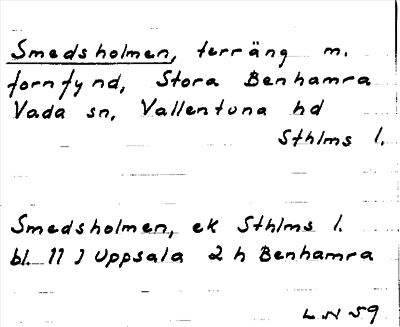 Smedsholmen, terräng m.
fornfynd, Stora Benhamra
Vada sn, Vallentuna hd
Sthlms l.
Smedsholmen, ek Sthlms l.
bl. 11 J Uppsala 2 h Benhamra
L N 59